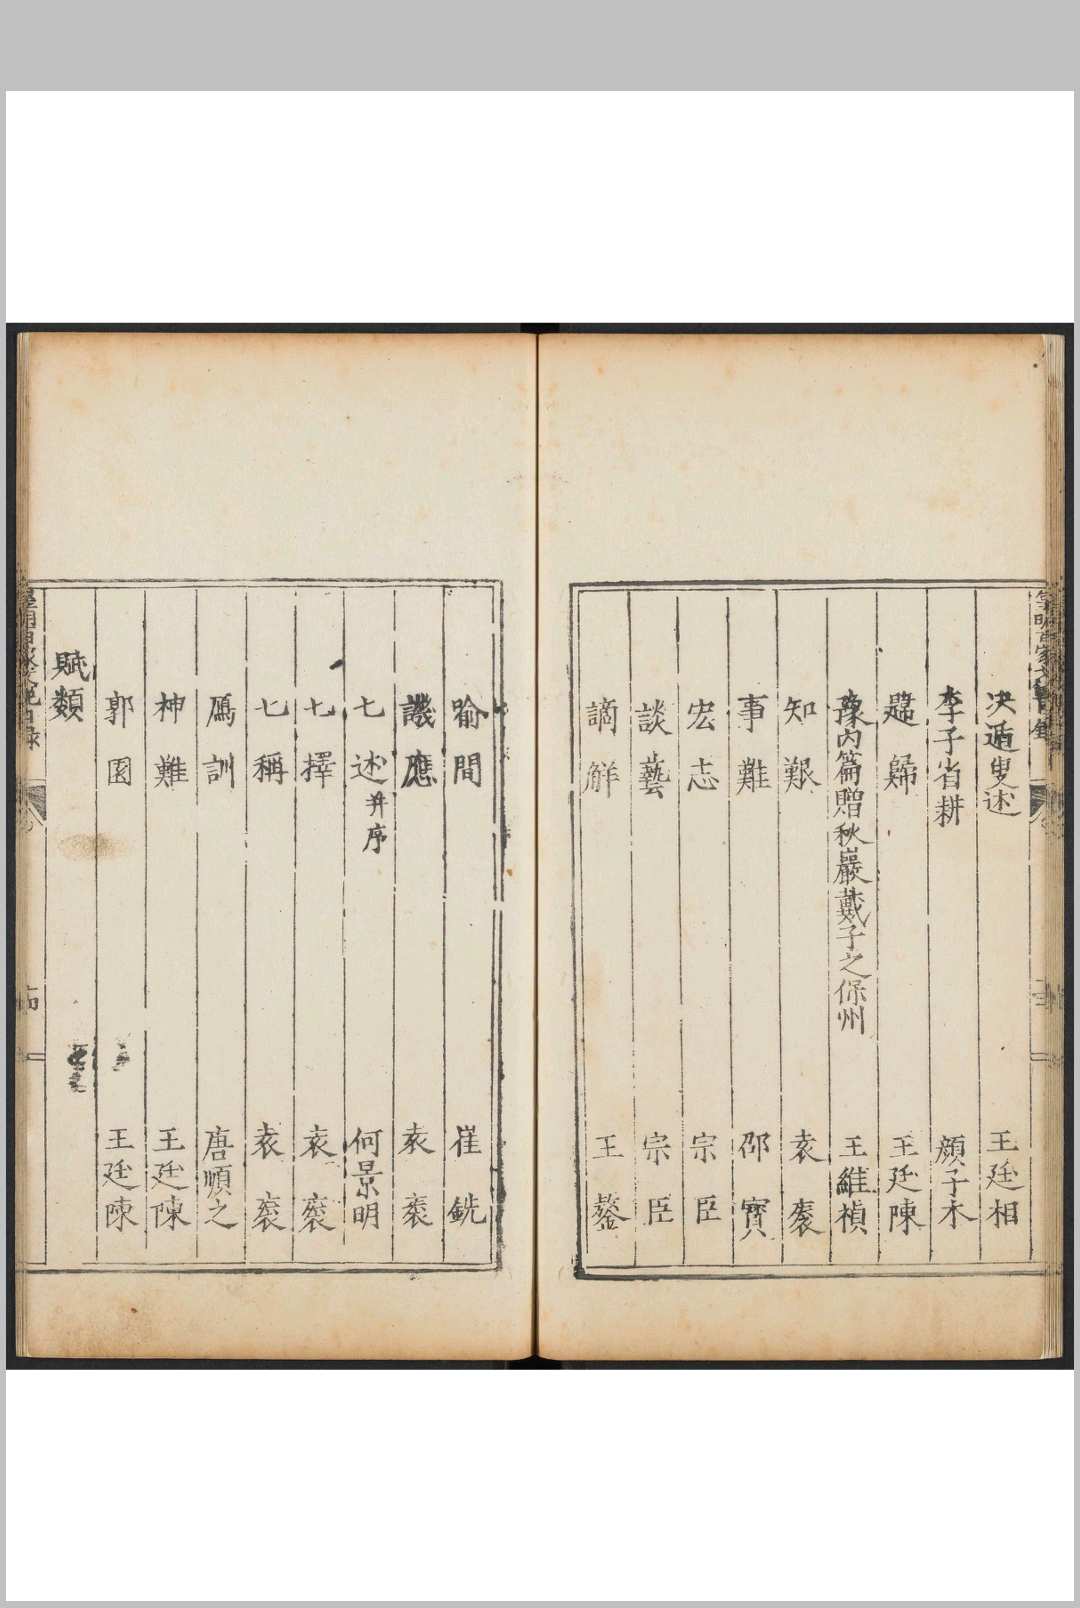 決遁叟述 王廷相
李子省耕 顏子木
歸 王廷陳
豫內篇贈秋巖戴子之保州 王維楨
知艱 袁袠
事難 邵寶
宏志 宗臣
談藝 宗臣
謫解 王鏊
喻間 崔銑
譏應 袁袠
七述并序 何景明
七擇 袁袠
七稱 袁袠
鴈訓 唐順之
神難 王廷陳
郭園 王廷陳
賦類